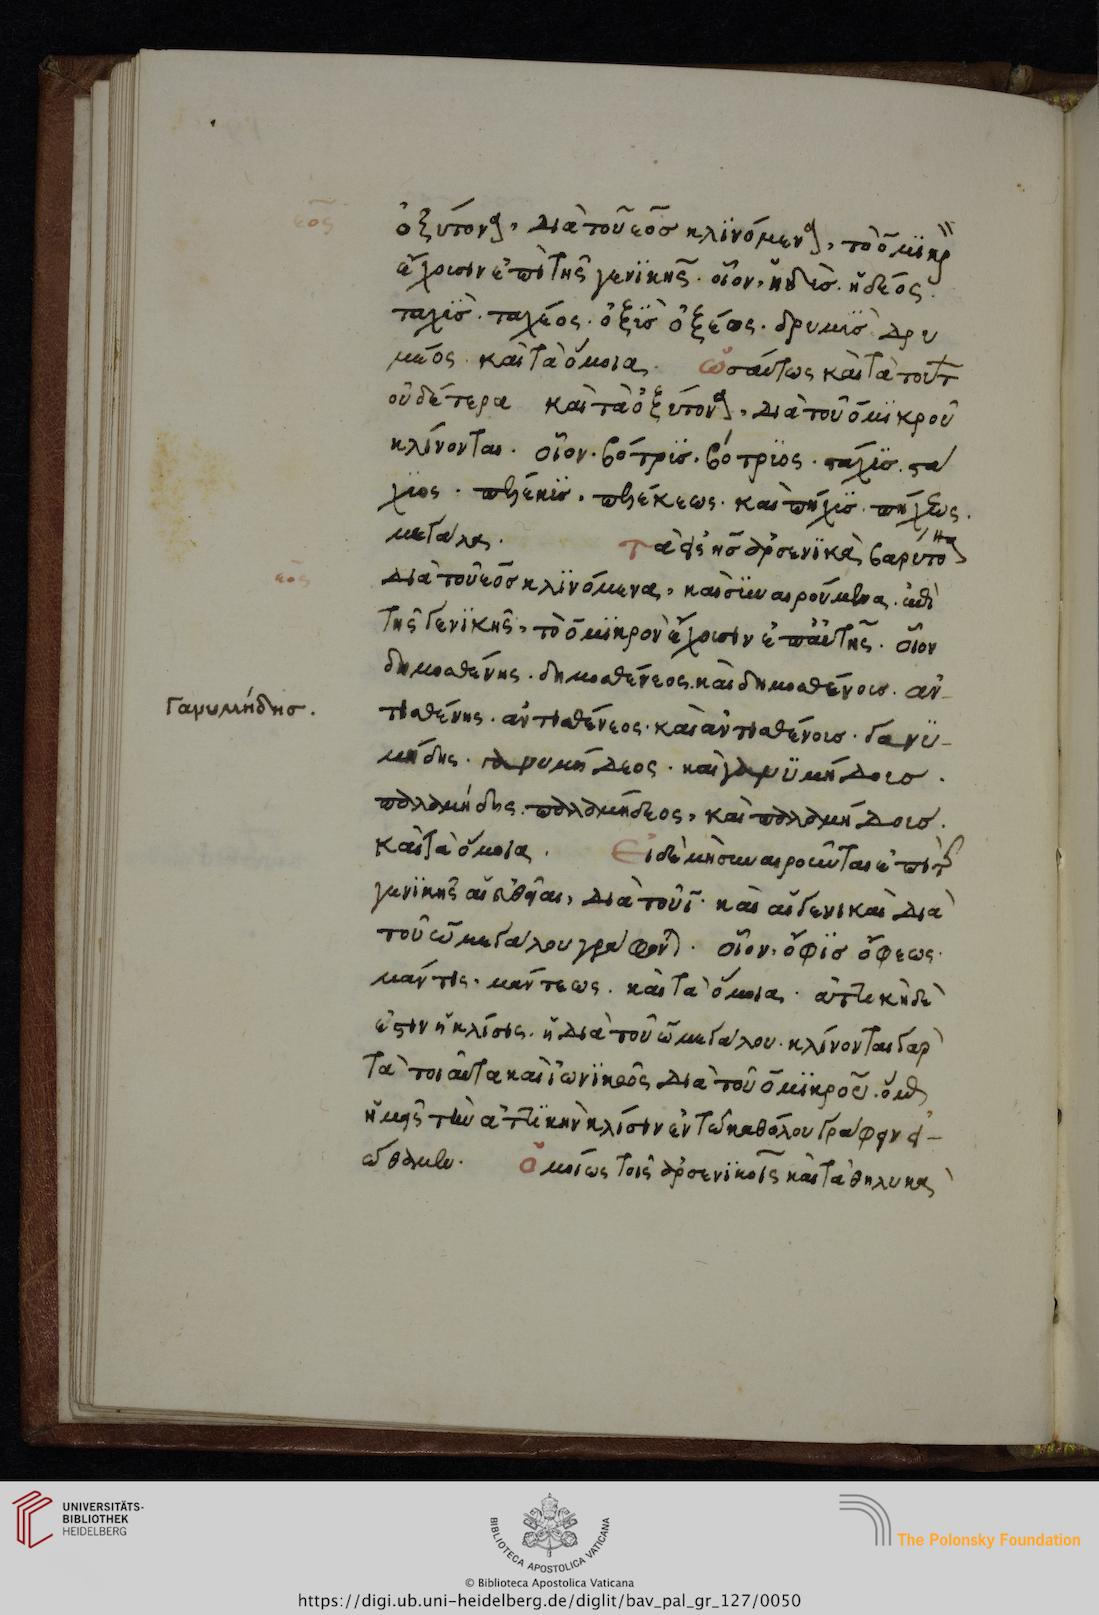 εος
ὀξύτονα, διὰ τοῦ εος κλϊνόμενα, τὸ ο μϊκρ
ἔχουσιν ἐπὶ τῆς γενϊκῆς. οἷον, ἡδὺς. ἡδέος.
ταχϋς. ταχέος. ὀξϋς ὀξέος. δρυμϋς δρυ
μέος. καὶ τὰ ὅμοια. ὡσαύτως καὶ τὰ τούτ
οὐδέτερα καὶ τὰ ὀξύτονα, διὰ τοῦ ο μϊκροῦ
κλίνονται. οἷον. βότρϋς. βότρϋος. στάχϋς. στά
χϋος. πέλεκϋς. πελέκεως. καὶ πῆχϋς. πήχεως.
μεγάλα. τὰ εἰς ης ἀρσενϊκὰ βαρύτονα
εος
διὰ τοῦ εος κλϊνόμενα, καὶ συναιρούμενα. ἀπὸ
τῆς γενϊκῆς, τὸ ο μϊκρὸν ἔχουσιν ἐπ αὐτῆς. οἷον
δημοσθένης. δημοσθένεος. καὶ δημοσθένους. ἀν-
τισθένης. ἀντισθένεος. καὶ ἀντισθένους. γανϋ-
Γανυμήδης.
μήδης. γανυμήδεος. καὶ γανϋμήδους.
παλαμήδης. παλαμήδεος, καὶ παλαμήδους.
καὶ τὰ ὅμοια. Εἰ δὲ μὴ συναιροῦνται ἐπὶ τ
γενϊκῆς αἱ εὐθεῖαι, διὰ τοῦ ι. καὶ αἱ γενικαὶ διὰ
τοῦ ω μεγάλου γράφονται. οἷον, ὄφϊς ὄφεως.
μάντις. μάντεως. καὶ τὰ ὅμοια. ἀττικὴ δὲ
ἐστιν ἡ κλίσις. ἡ διὰ τοῦ ω μεγάλου. κλίνονται γὰρ
τὰ τοιαῦτα καὶ ἰωνϊκῶς διὰ τοῦ ο μϊκροῦ.
ἡμεῖς τὴν ἀττϊκὴν κλίσιν ἐν τῶ καθόλου γράφειν εἰ-
ώθαμεν. Ὁμοίως τοῖς ἀρσενϊκοῖς καὶ τὰ θηλυκὰ
UNIVERSITÄTS-
BIBLIOTHEK
HEIDELBERG
BIBLIOTECA APOSTOLICA VATICANA
The Polonsky Foundation
© Biblioteca Apostolica Vaticana
https://digi.ub.uni-heidelberg.de/diglit/bav_pal_gr_127/0050